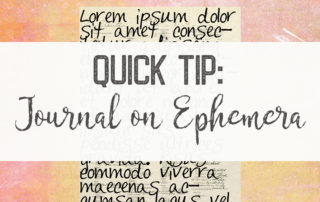 Lorem ipsum dolor
sit amet, consec-
QUICK TIP:
Journal on Ephemera
commodo viverra
maecenas ac-
cumsan lacus vel